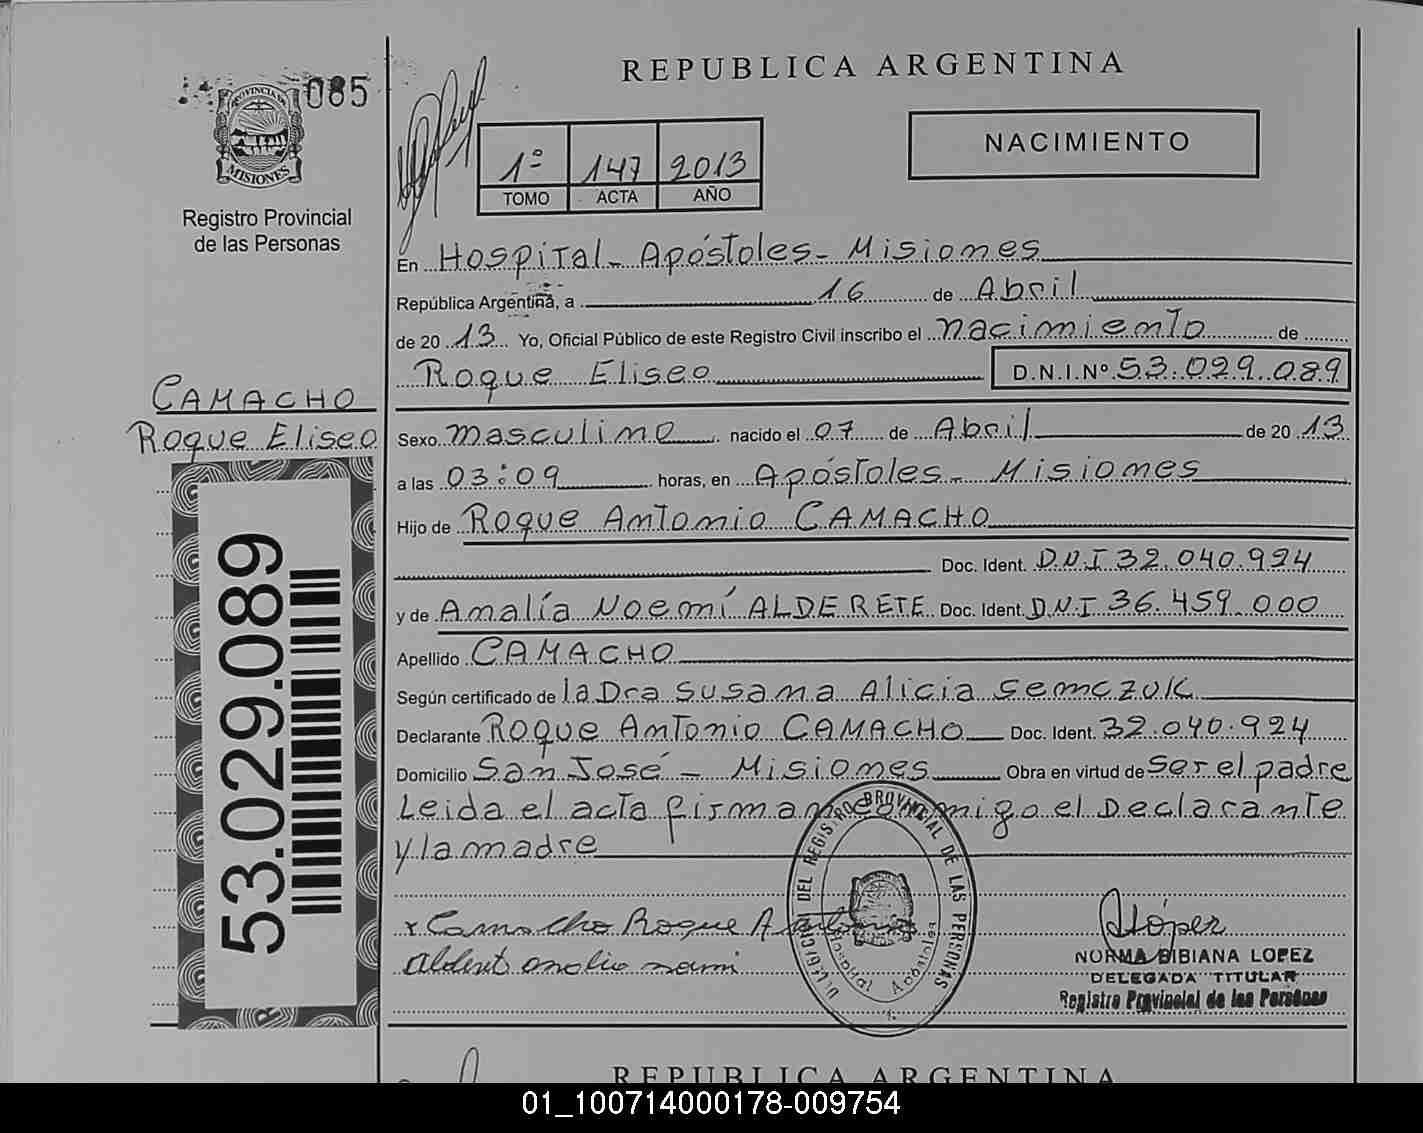 085
PROVINCIA DE
MISIONES
Registro Provincial
de las Personas
CAMACHO
Roque Eliseo
53.029.089
REPUBLICA ARGENTINA
NACIMIENTO
1º 147 2013
TOMO ACTA AÑO
En Hospital - Apóstoles - Misiones
República Argentina, a 16 de Abril
de 2013 Yo, Oficial Público de este Registro Civil inscribo el nacimiento de
Roque Eliseo D.N.I.Nº 53.029.089
Sexo masculino nacido el 07 de Abril de 2013
a las 03:09 horas, en Apóstoles - Misiones
Hijo de Roque Antonio CAMACHO
Doc. Ident. D.N.I 32.040.924
y de Amalía Noemí ALDERETE Doc. Ident. D.N.I 36.459.000
Apellido CAMACHO
Según certificado de la Dra Susana Alicia Semczuk
Declarante Roque Antonio CAMACHO Doc. Ident. 32.040.924
Domicilio San José - Misiones Obra en virtud de ser el padre
Leida el acta firman conmigo el Declarante
y la madre
x Camacho Roque Antonio
DELEGACION DEL REGISTRO PROVINCIAL DE LAS PERSONAS
Hospital Apóstoles
López
NORMA BIBIANA LOPEZ
DELEGADA TITULAR
Registro Provincial de las Personas
REPUBLICA ARGENTINA
01_100714000178-009754